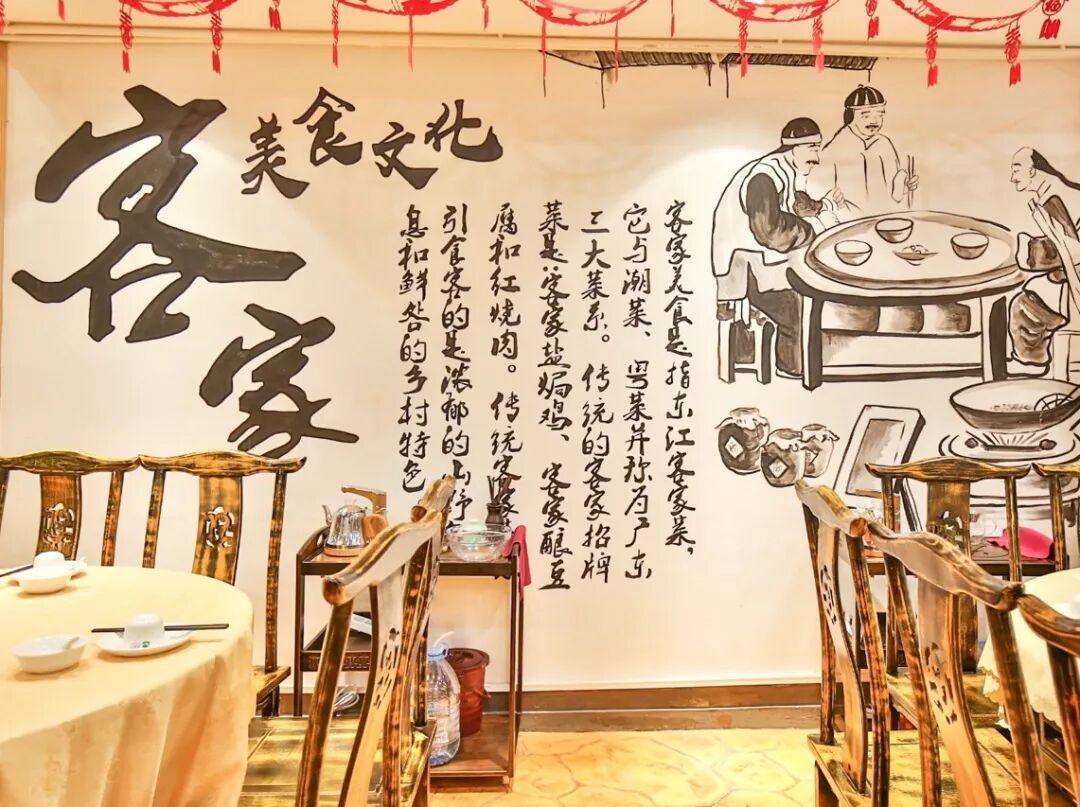 客家
美食文化
客家美食是指东江客家菜，
它与潮菜、粤菜并称为广东
三大菜系。传统的客家招牌
菜是：客家盐焗鸡、客家酿豆
腐和红烧肉。传统客家
引食客的是浓郁的山野
息和鲜咎的乡村特色